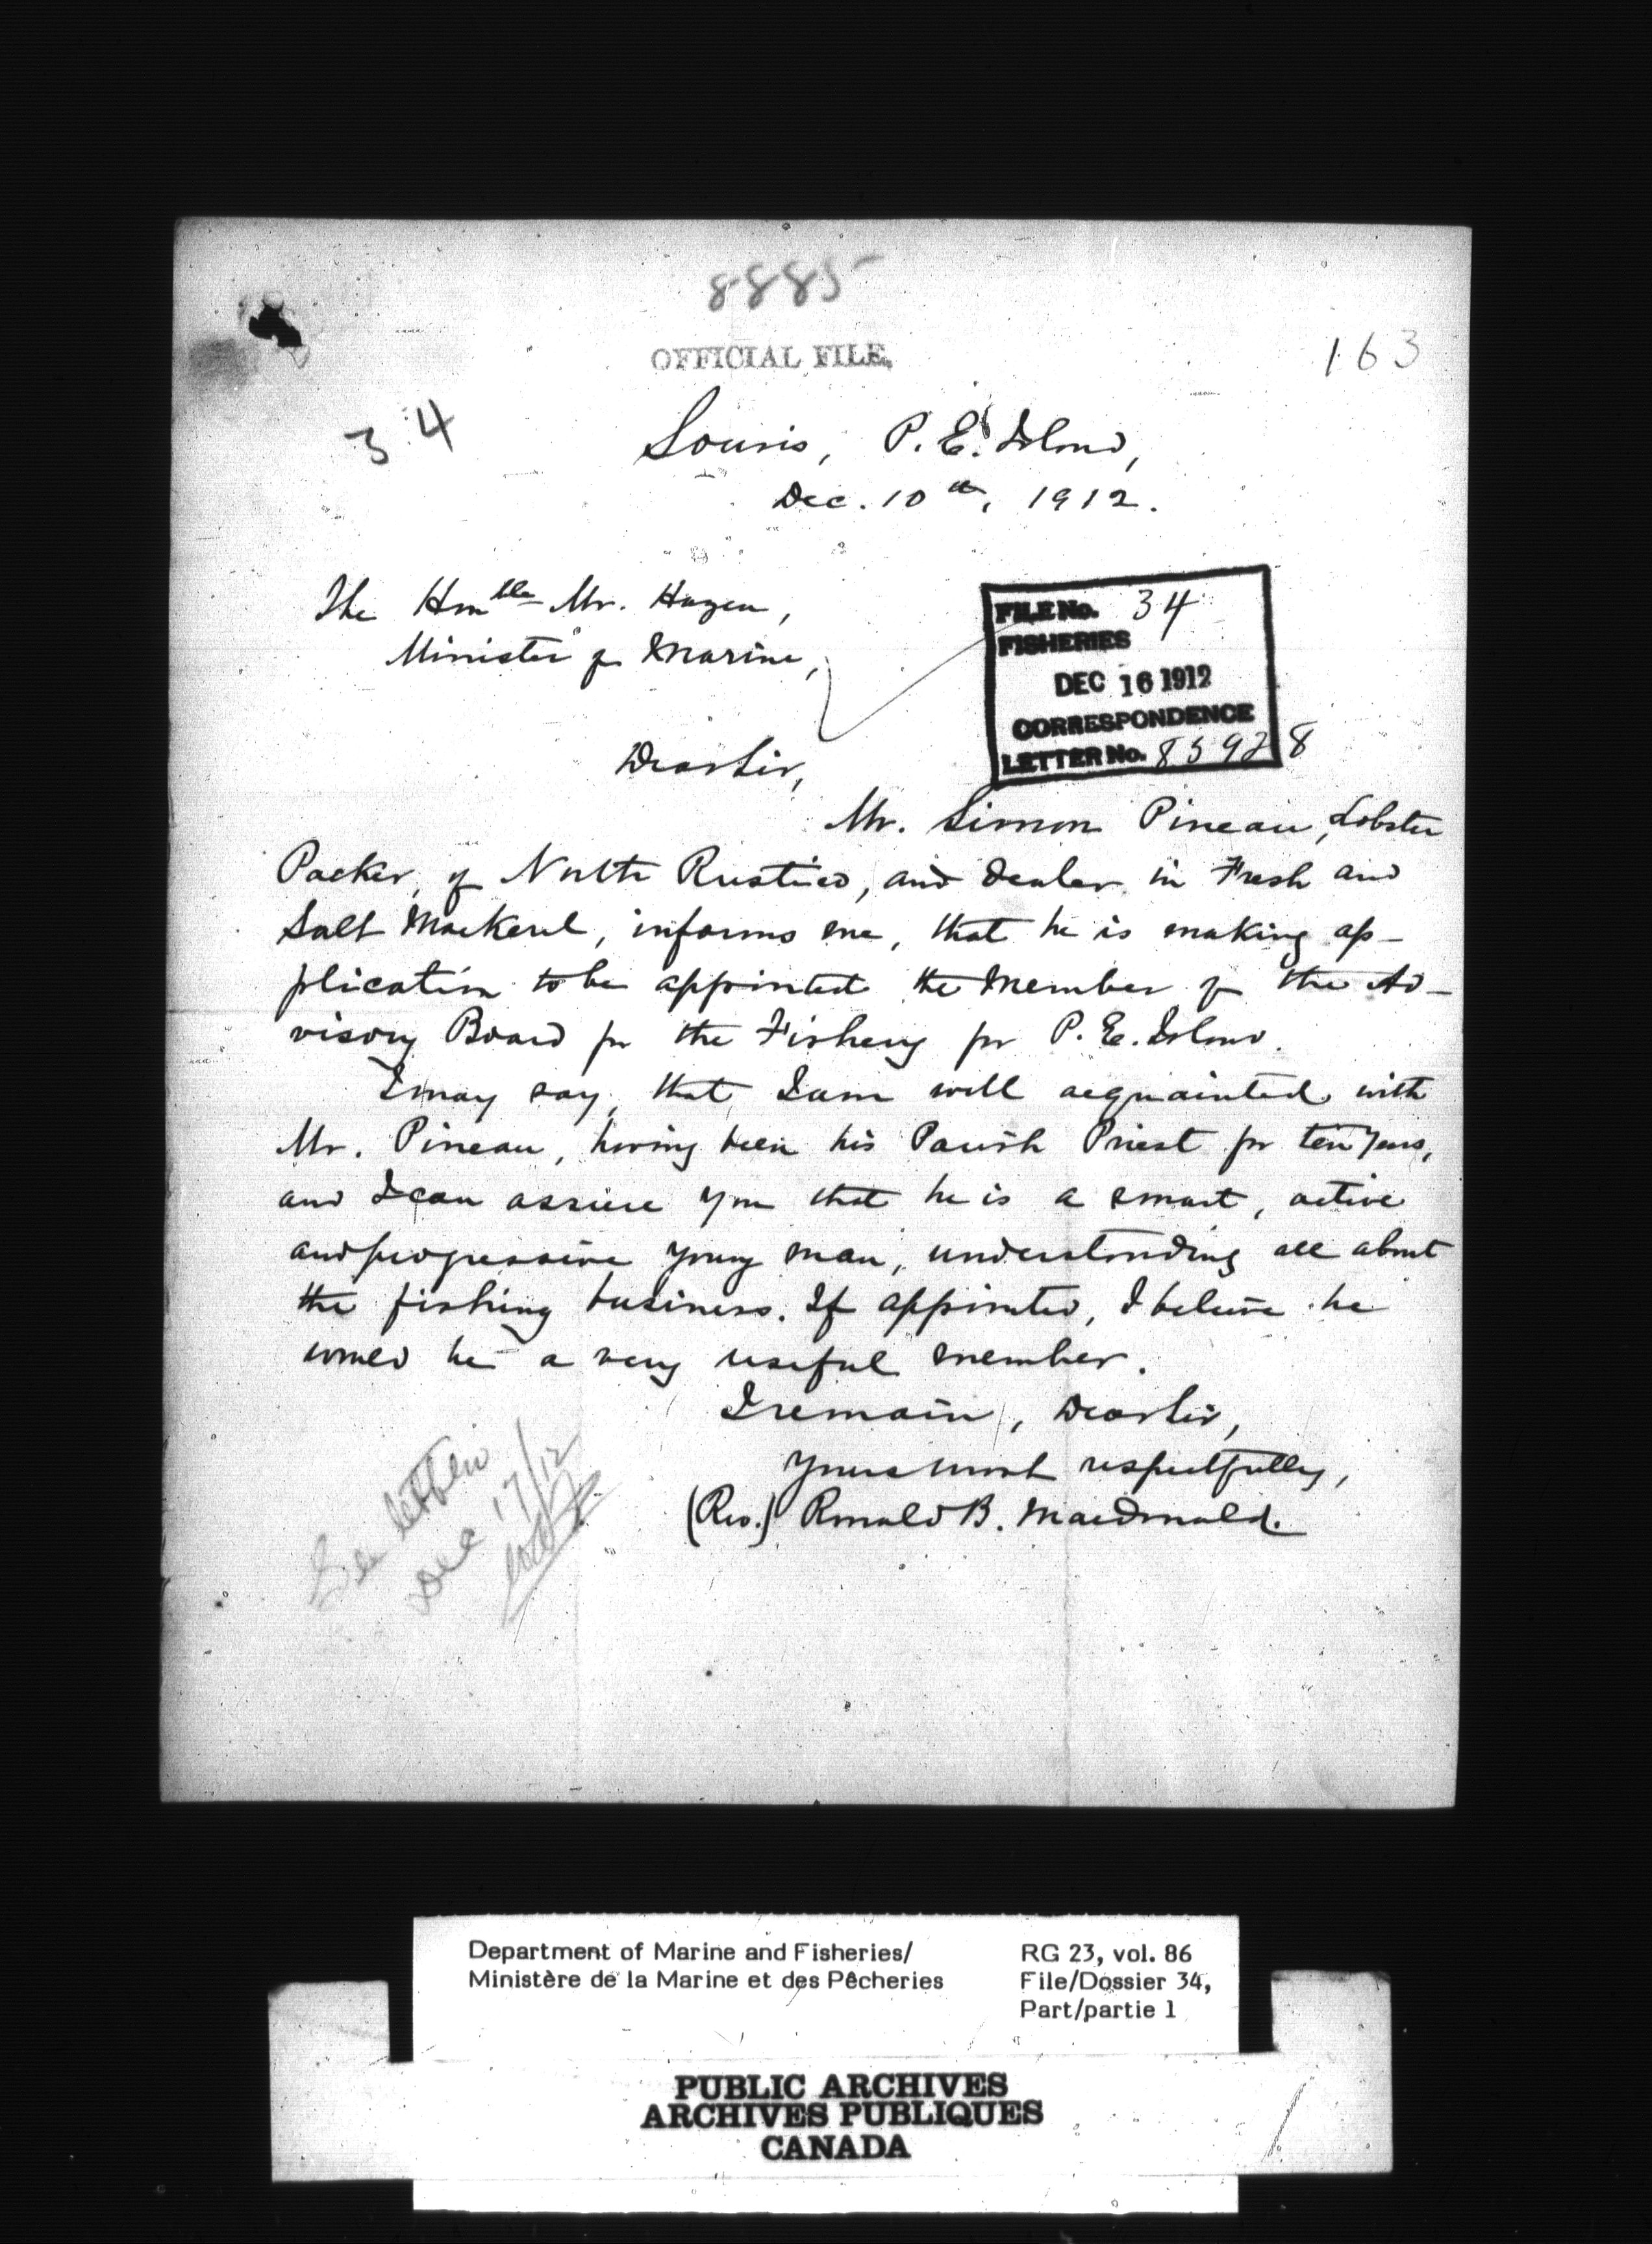 8885
OFFICIAL FILE.
163
34
Souris, P. E. Island,
Dec. 10th, 1912.
The Honble Mr. Hazen,
Minister of Marine,
FILE No. 34
FISHERIES
DEC 16 1912
CORRESPONDENCE
LETTER No. 85928
Dear Sir,
Mr. Simon Pineau, Lobster
Packer, of North Rustico, and dealer in Fresh and
Salt Mackerel, informs me, that he is making ap-
plication to be appointed the Member of the Ad-
visory Board for the Fishery for P. E. Island.
I may say, that I am well acquainted with
Mr. Pineau, having been his Parish Priest for ten years,
and I can assure you that he is a smart, active
and progressive young man, understanding all about
the fishing business. If appointed, I believe he
would be a very useful member.
I remain, Dear Sir,
Yours most respectfully,
(Rev.) Ronald B. MacDonald.
See letter
Dec 17/12
Department of Marine and Fisheries/
Ministère de la Marine et des Pêcheries
RG 23, vol. 86
File/Dossier 34,
Part/partie 1
PUBLIC ARCHIVES
ARCHIVES PUBLIQUES
CANADA